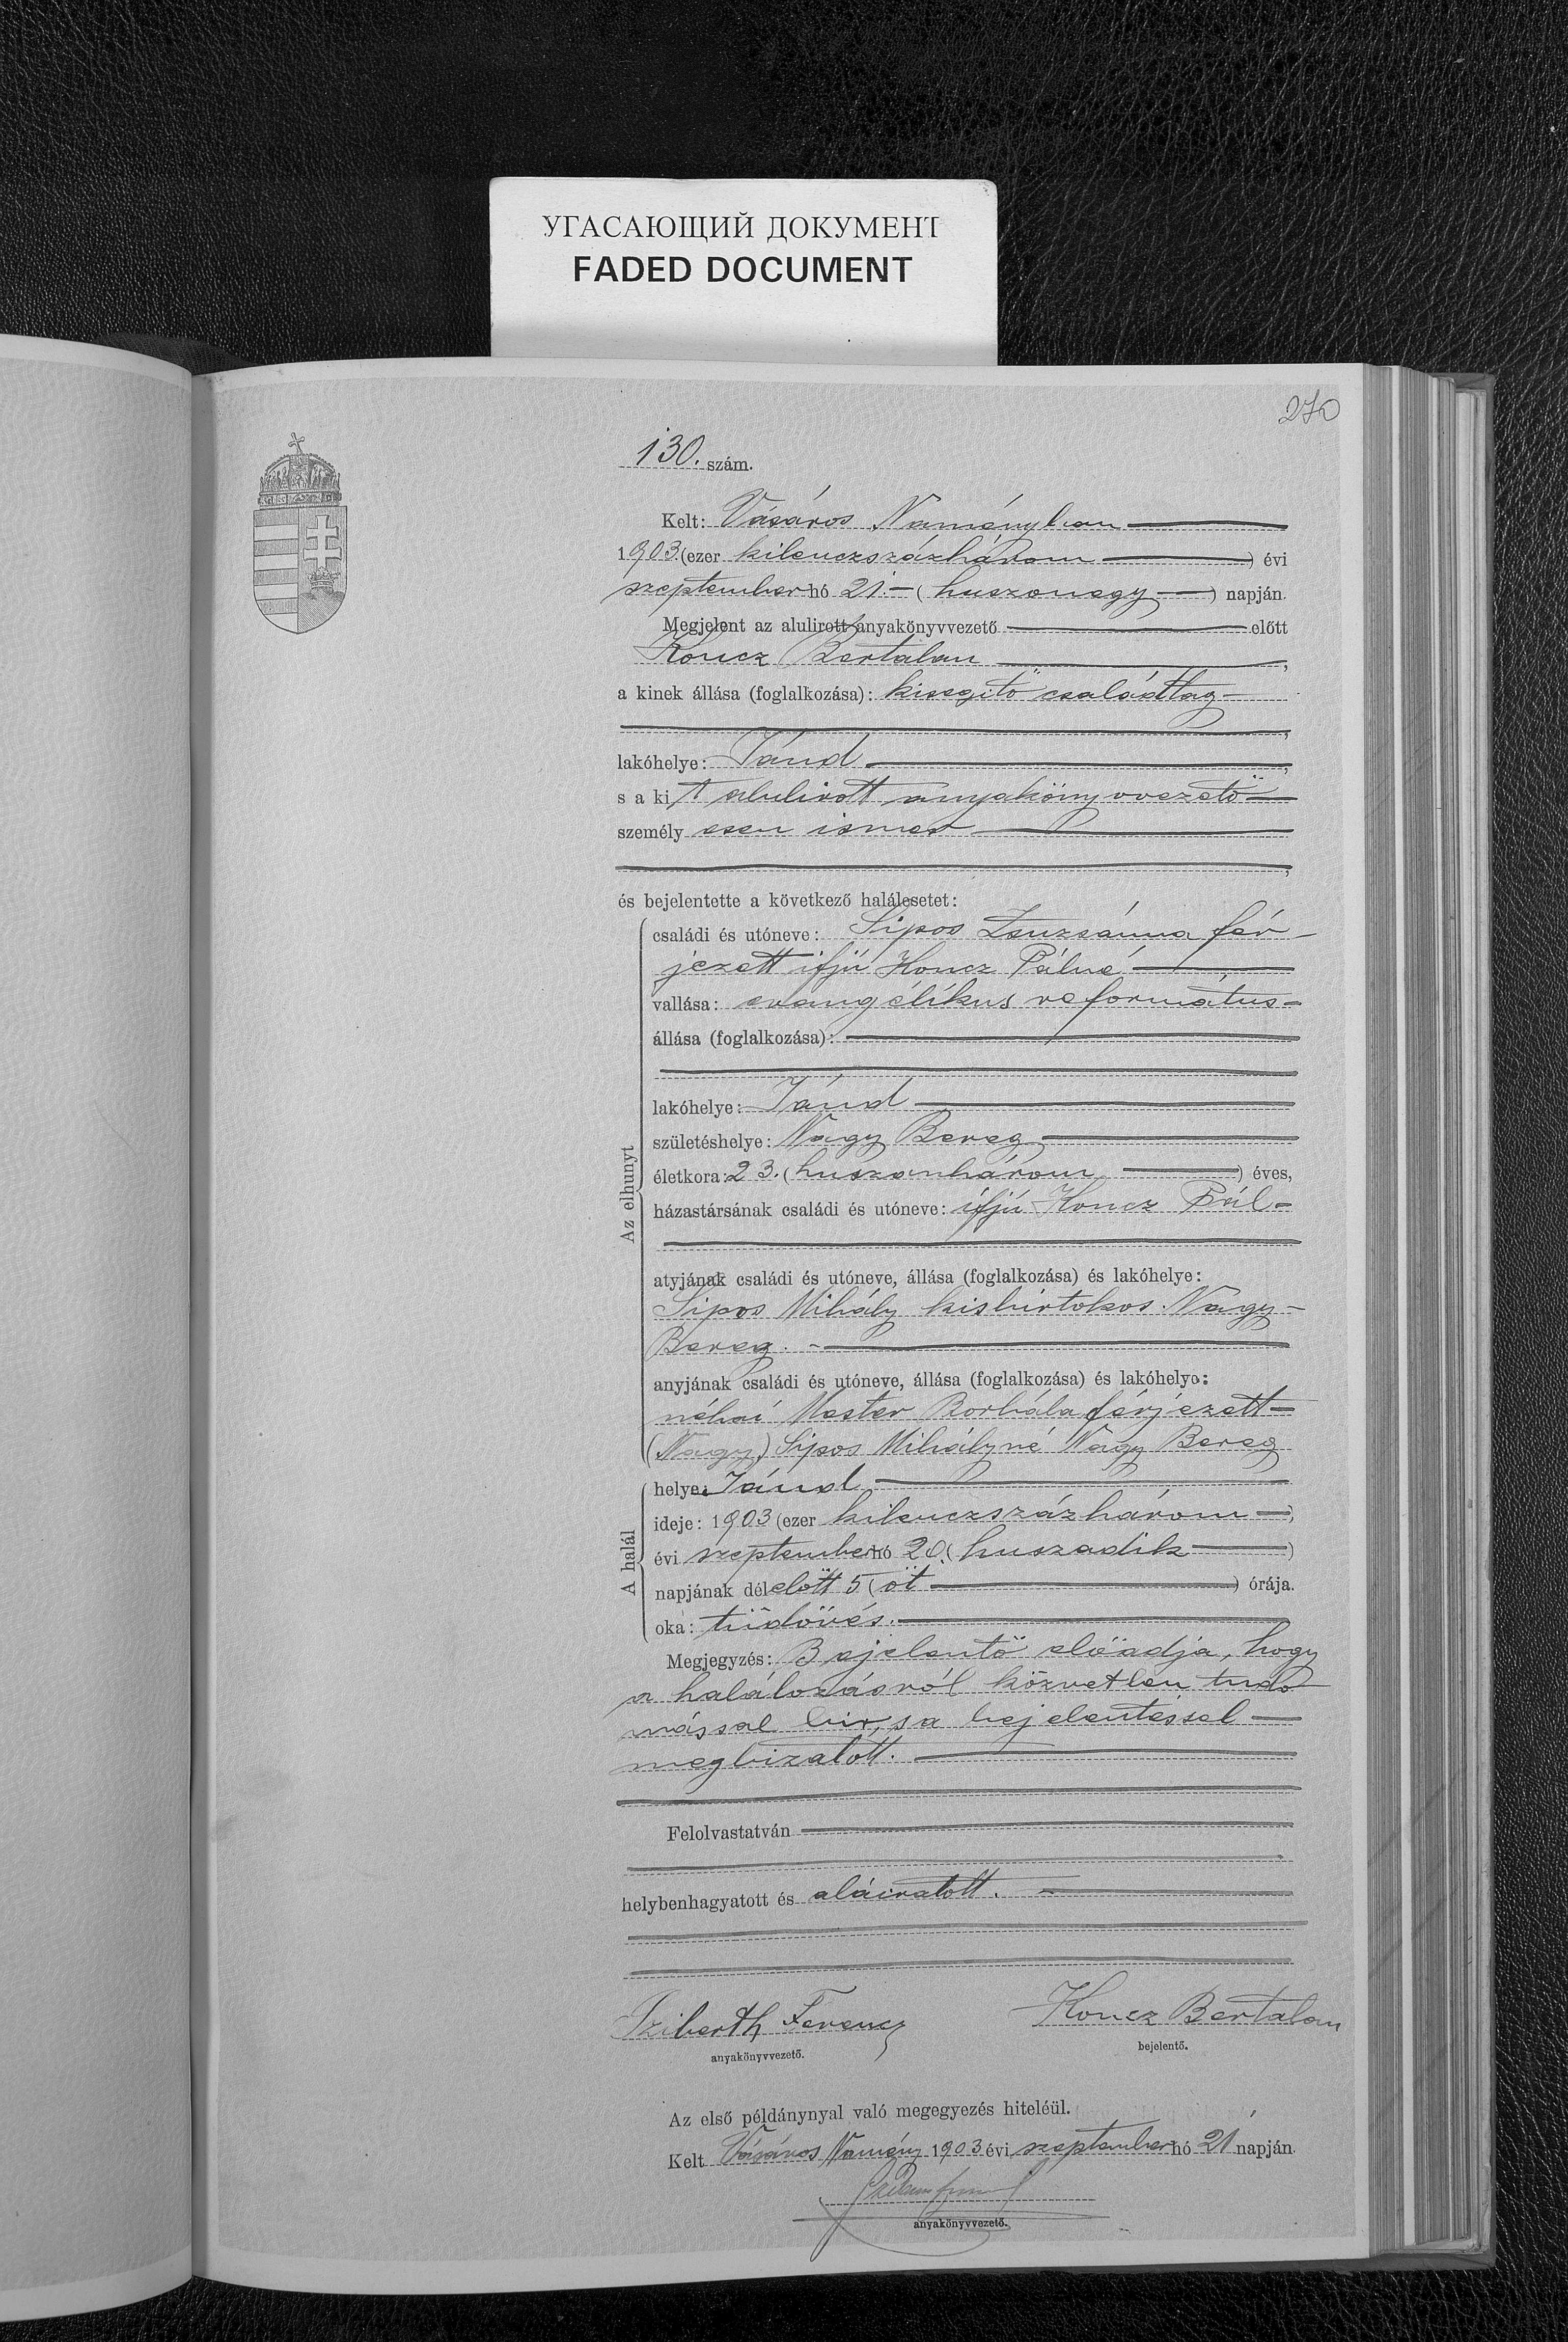 УГАСАЮЩИЙ ДОКУМЕНТ
FADED DOCUMENT
270
130. szám.
Kelt: Vásáros Naményban
1903. (ezer kilenczszázhárom) évi
szeptember hó 21. (huszonegy) napján.
Megjelent az alulirott anyakönyvvezető előtt
Koncz Bertalan,
a kinek állása (foglalkozása): kisegitő családtag
,
lakóhelye: Jánd,
s a kit alulirott anyakönyvvezető
személyesen ismer
,
és bejelentette a következő halálesetet:
Az elhunyt
családi és utóneve: Sipos Zsuzsánna fér-
jezett ifjú Koncz Pálné
vallása: evangélikus református
állása (foglalkozása):
lakóhelye: Jánd
születéshelye: Nagy Bereg
életkora: 23. (huszonhárom) éves,
házastársának családi és utóneve: ifjú Koncz Pál
atyjának családi és utóneve, állása (foglalkozása) és lakóhelye:
Sipos Mihály kisbirtokos Nagy-
Bereg.
anyjának családi és utóneve, állása (foglalkozása) és lakóhelye:
néhai Mester Borbála férjezett
(Nagy) Sipos Mihályné Nagy Bereg
A halál
helye: Jánd
ideje: 1903 (ezer kilenczszázhárom)
évi szeptember hó 20. (huszadik)
napjának délelőtt 5 (öt) órája.
oka: tüdővés.
Megjegyzés: Bejelentő előadja, hogy
a halálozásról közvetlen tudo
mással bir, s a bejelentéssel
megbizatott.
Felolvastatván
helybenhagyatott és aláiratott.
Sziberth Ferencz
anyakönyvvezető.
Koncz Bertalan
bejelentő.
Az első példánynyal való megegyezés hiteléül.
Kelt Vásáros Namény 1903 évi szeptember hó 21 napján.
anyakönyvvezető.